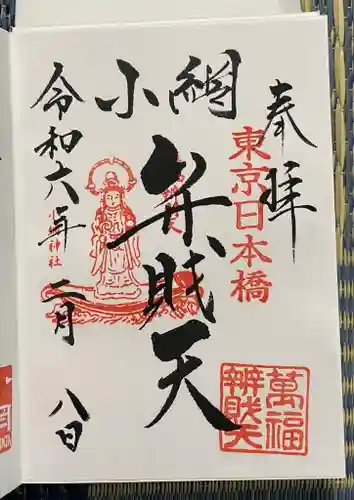 奉拝
東京日本橋
小網
弁財天
萬福
辨財天
令和六年二月八日
小網神社